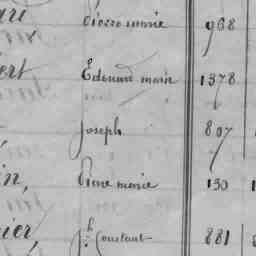 Pierre marie 968
Edouard marie 1378
joseph 807
Pierre marie 130
jh Constant 881